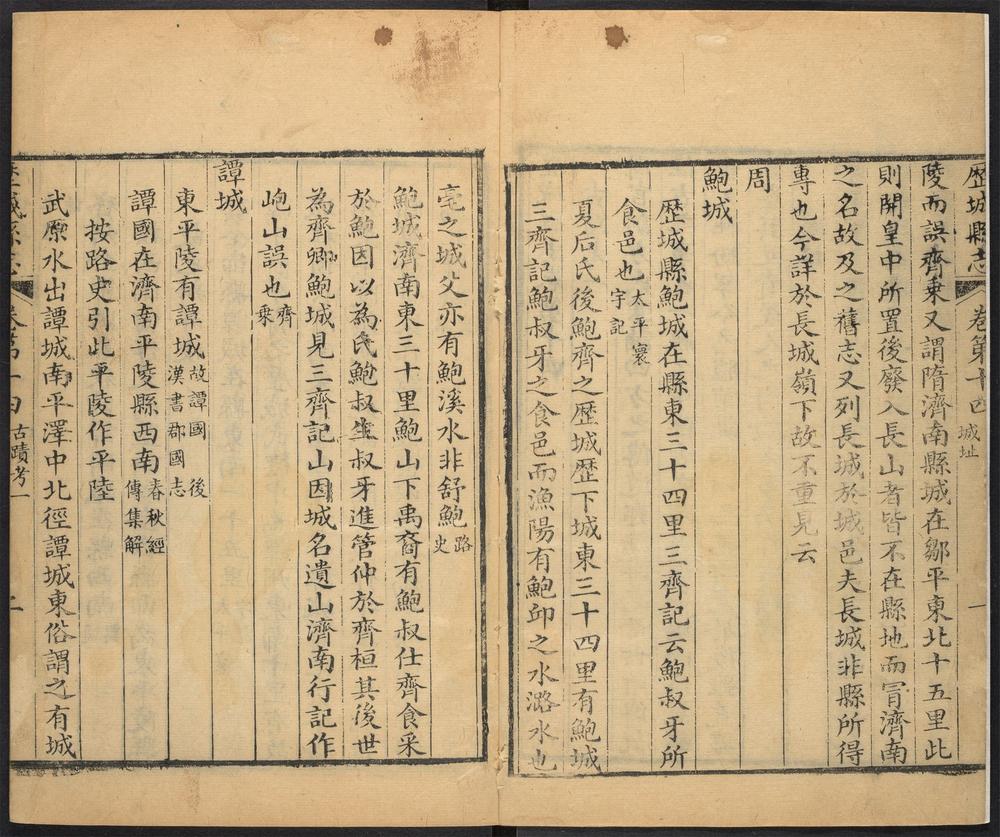 歴城縣志 卷第十四 城址 一
陵而誤齊乗又謂隋濟南縣城在鄒平東北十五里此
則開皇中所置後廢入長山者皆不在縣地而冐濟南
之名故及之舊志又列長城於城邑夫長城非縣所得
專也今詳於長城嶺下故不重見云
周
鮑城
歴城縣鮑城在縣東三十四里三齊記云鮑叔牙所
食邑也太平寰宇記
夏后氏後鮑齊之歴城歴下城東三十四里有鮑城
三齊記鮑叔牙之食邑而漁陽有鮑丘之水潞水也
亳之城父亦有鮑溪水非舒鮑路史
鮑城濟南東三十里鮑山下禹裔有鮑叔仕齊食采
於鮑因以為氏鮑叔生叔牙進管仲於齊桓其後世
為齊卿鮑城見三齊記山因城名遺山濟南行記作
岉山誤也齊乗
譚城
東平陵有譚城故譚國後漢書郡國志
譚國在濟南平陵縣西南春秋經傳集解
按路史引此平陵作平陸
武原水出譚城南平澤中北徑譚城東俗謂之有城
歴城縣志 卷第十四 古蹟考一 二